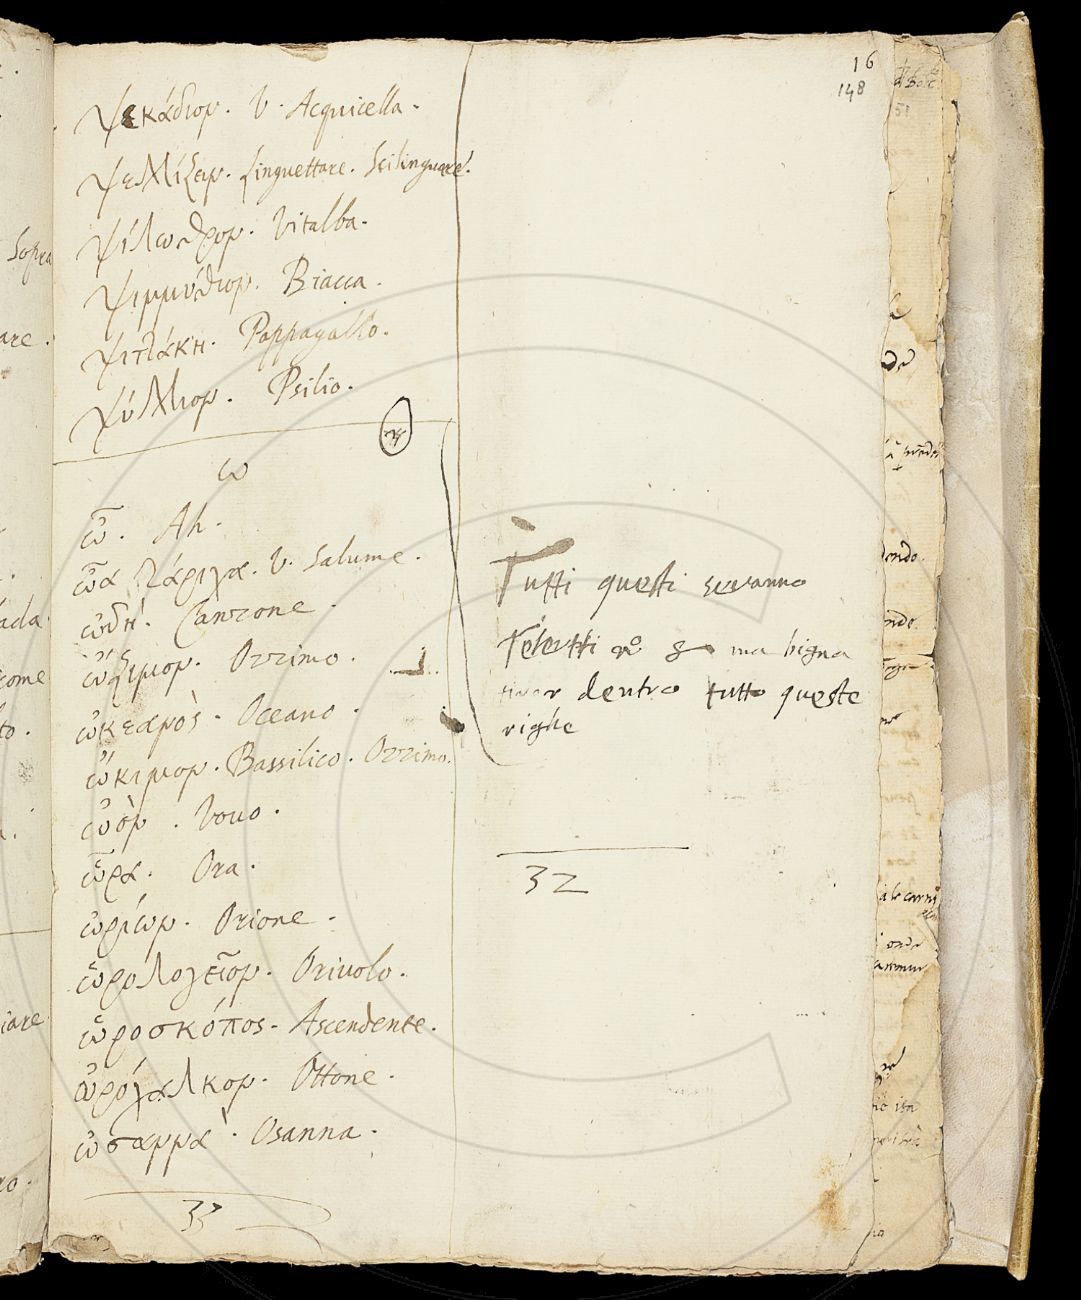 16
148
ψεκάδιον. V. Acquicella.
ψελλίζειν. Linguettare. Scilinguare.
ψίλωθρον. Vitalba.
ψιμμύθιον. Biacca.
ψιττάκη. Pappagallo.
ψύλλιον. Psilio.
ω
ὦ. Ah.
ὦα τάριχα. V. Salume.
ὠδή. Canzone.
ὤζιμον. Ozzimo.
ὠκεανὸς. Oceano.
ὤκιμον. Bassilico. Ozzimo.
ὠὸν. Vouo.
ὥρα. Ora.
ὠρίων. Orione.
ὡρολογεῖον. Oriuolo.
ὡροσκόπος. Ascendente.
ὠρόχαλκον. Ottone.
ὡσαννὰ. Osanna.
33
Tutti questi
ma bigna
dentro tutto queste
righe
32